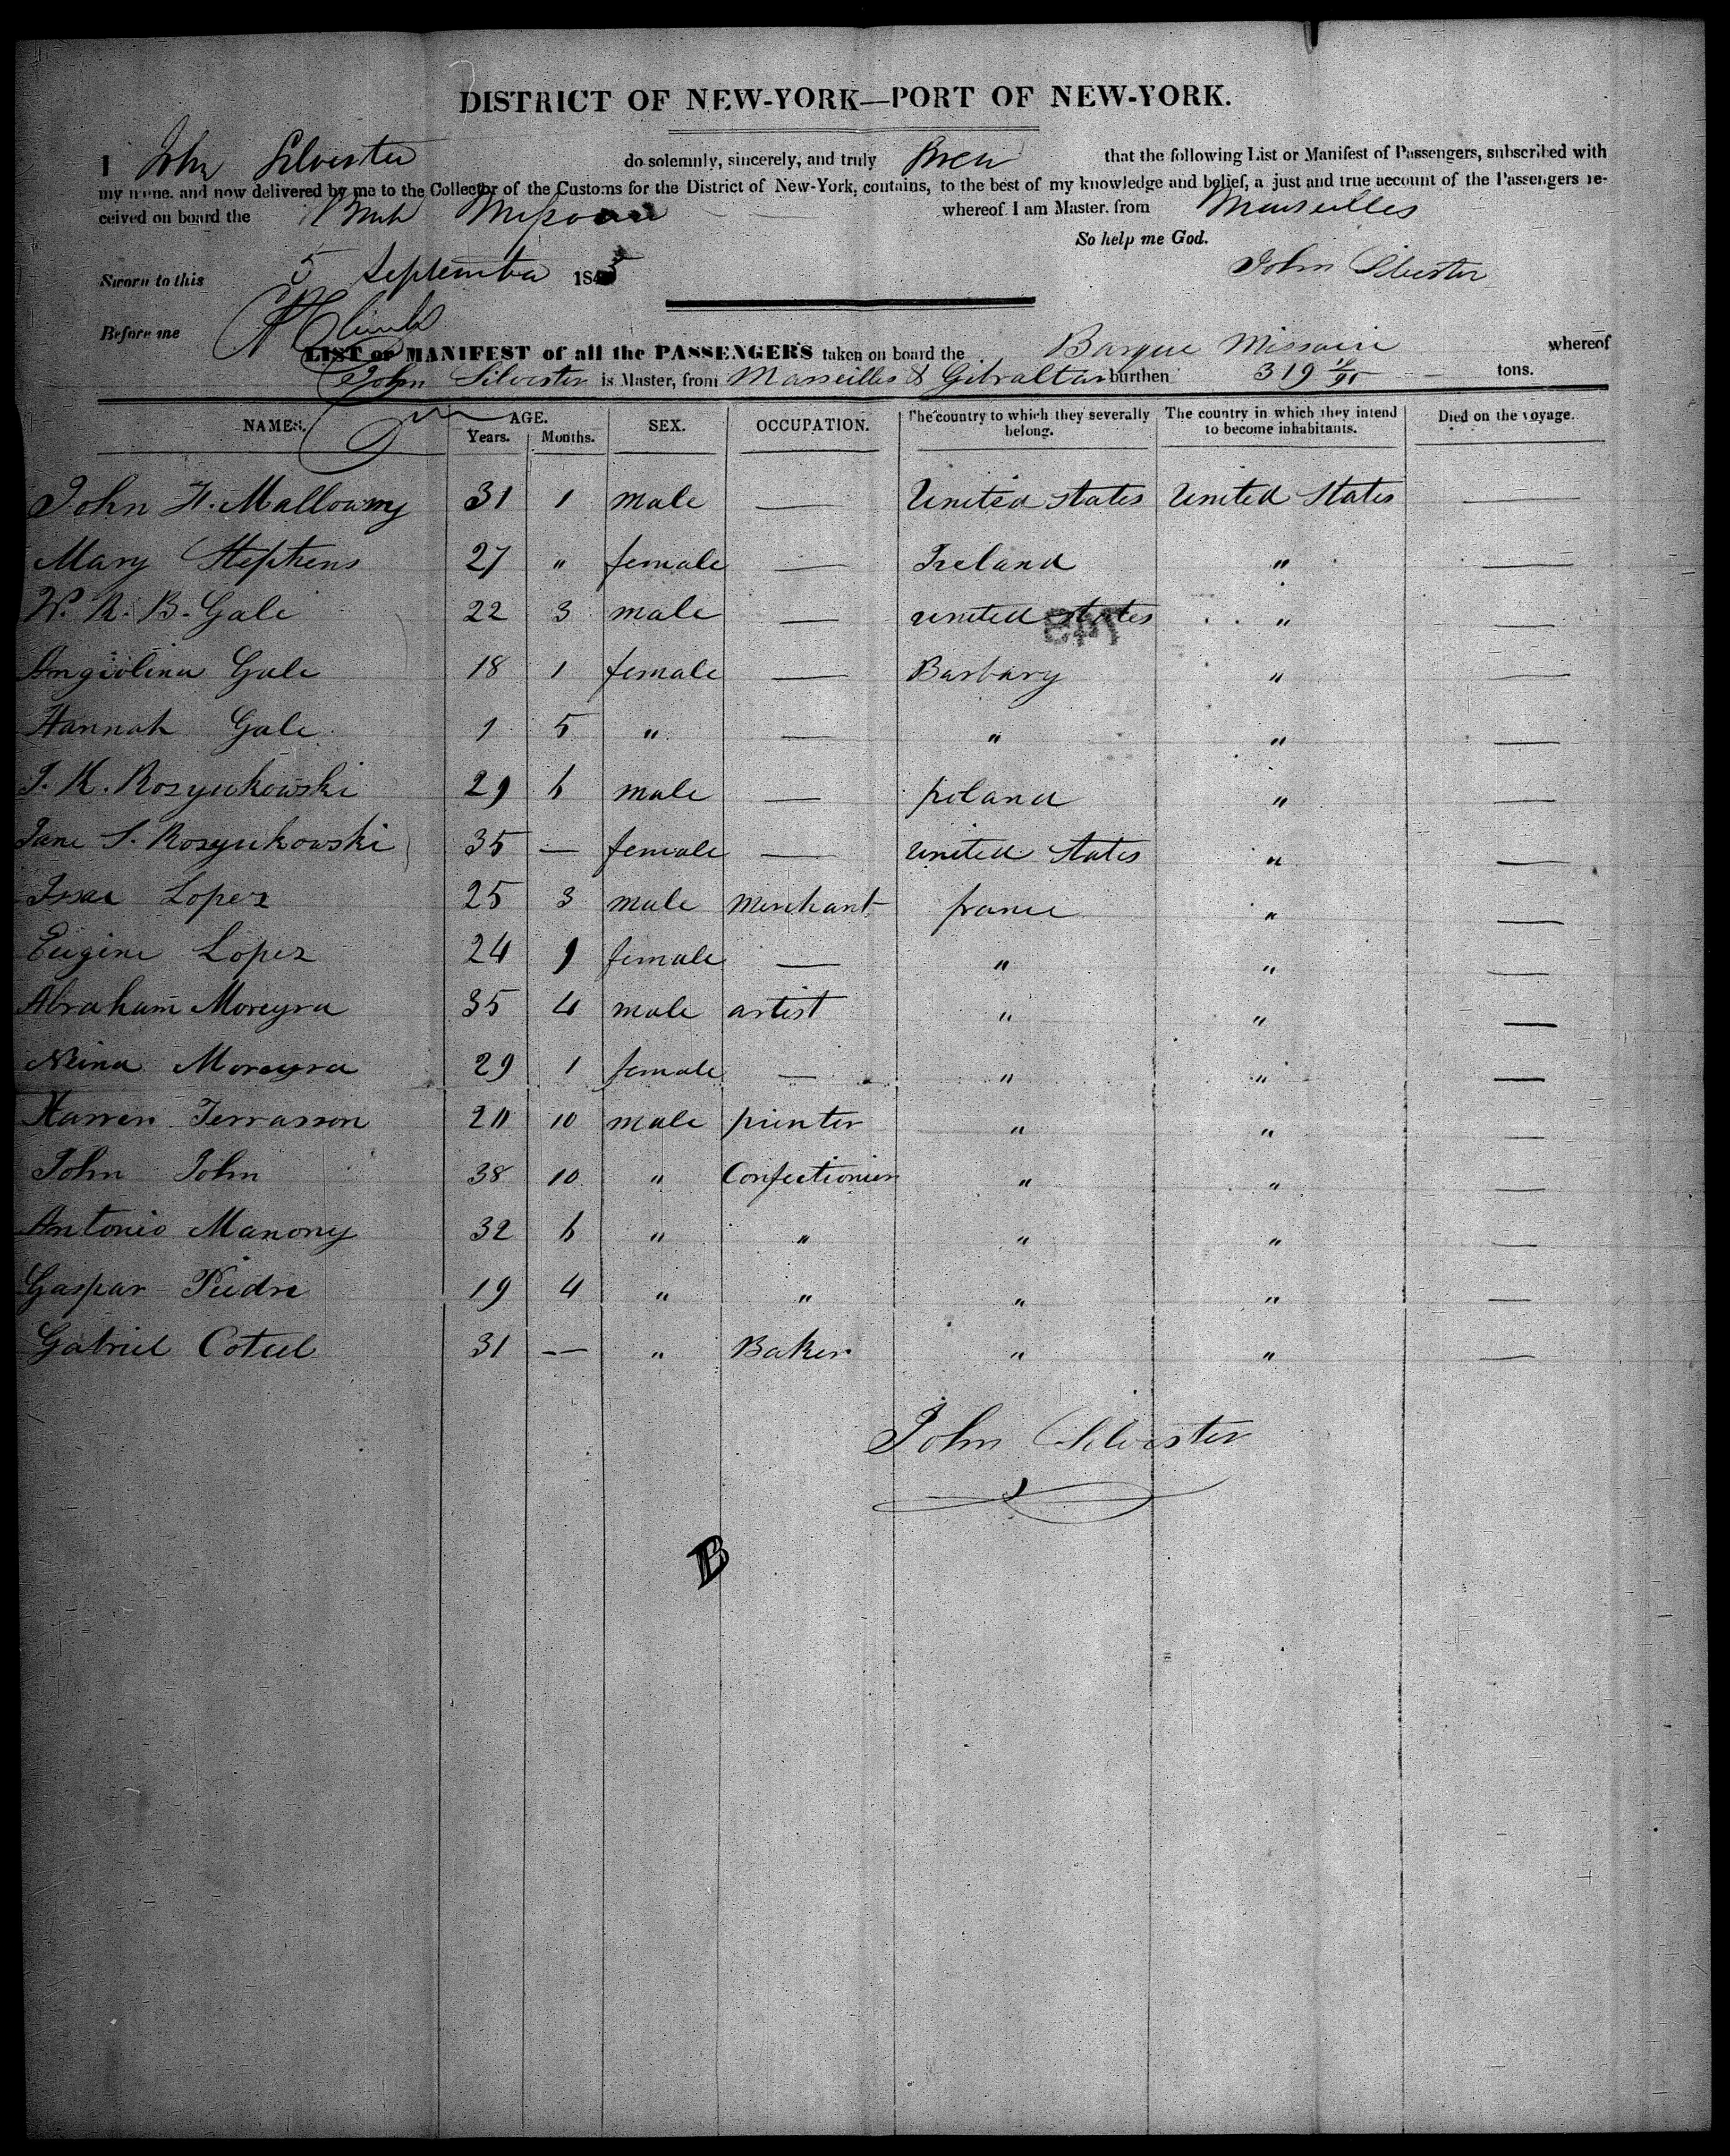 DISTRICT OF NEW-YORK—PORT OF NEW-YORK.
I John Silvester do solemnly, sincerely, and truly Swear that the following List or Manifest of Passengers, subscribed with
my name, and now delivered by me to the Collector of the Customs for the District of New-York, contains, to the best of my knowledge and belief, a just and true account of the Passengers re-
ceived on board the whereof I am Master, from Marseilles
So help me God.
Sworn to this 5 September 1845 John Silvester
Before me
LIST or MANIFEST of all the PASSENGERS taken on board the Barque Missouri whereof
John Silvester is Master, from Marseilles & Gibraltar burthen 319 tons.
NAMES. AGE. Years. Months. SEX. OCCUPATION. The country to which they severally belong. The country in which they intend to become inhabitants. Died on the voyage.
John H. Mallowny 31 1 male — United States United States —
Mary Stephens 27 " female — Ireland " —
W. R. B. Gale 22 3 male — united states " —
Angiolina Gale 18 1 female — Barbary " —
Hannah Gale 1 5 " — " " —
J. K. Rosyuchowski 29 6 male — poland " —
Jane S. Rosyukowski 35 — female — united States " —
Isac Lopez 25 3 male Merchant france " —
Eugine Lopez 24 9 female — " " —
Abraham Moreyra 35 4 male artist " " —
Neina Moreyra 29 1 female — " " —
Terrasson 20 10 male printer " " —
John John 38 10 " Confectionier " " —
Antonio Manony 32 6 " " " " —
Gaspar Piedre 19 4 " " " " —
Gabriel Coteel 31 — " Baker " " —
John Silvester
B